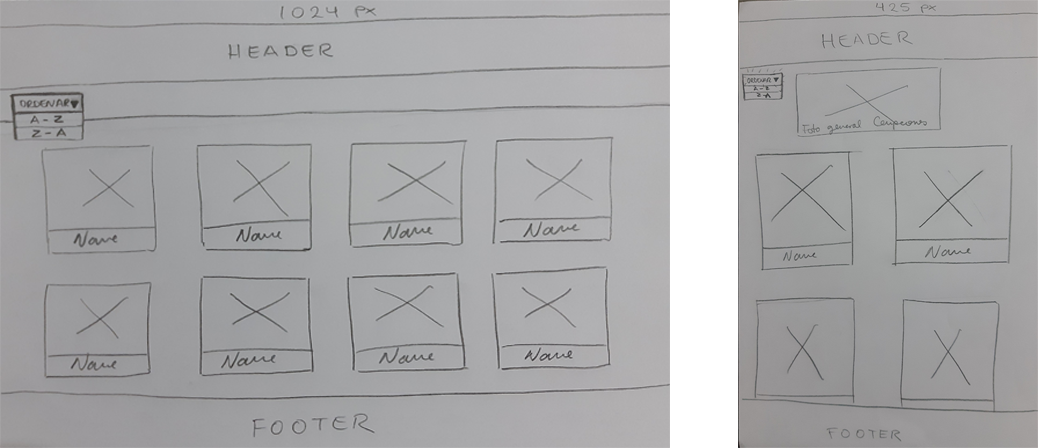 1024 px
HEADER
ORDENAR▼
A-Z
Z-A
Name Name Name Name
Name Name Name Name
FOOTER
425 px
HEADER
ORDENAR▼
A-Z
Z-A
Foto general
Name Name
FOOTER